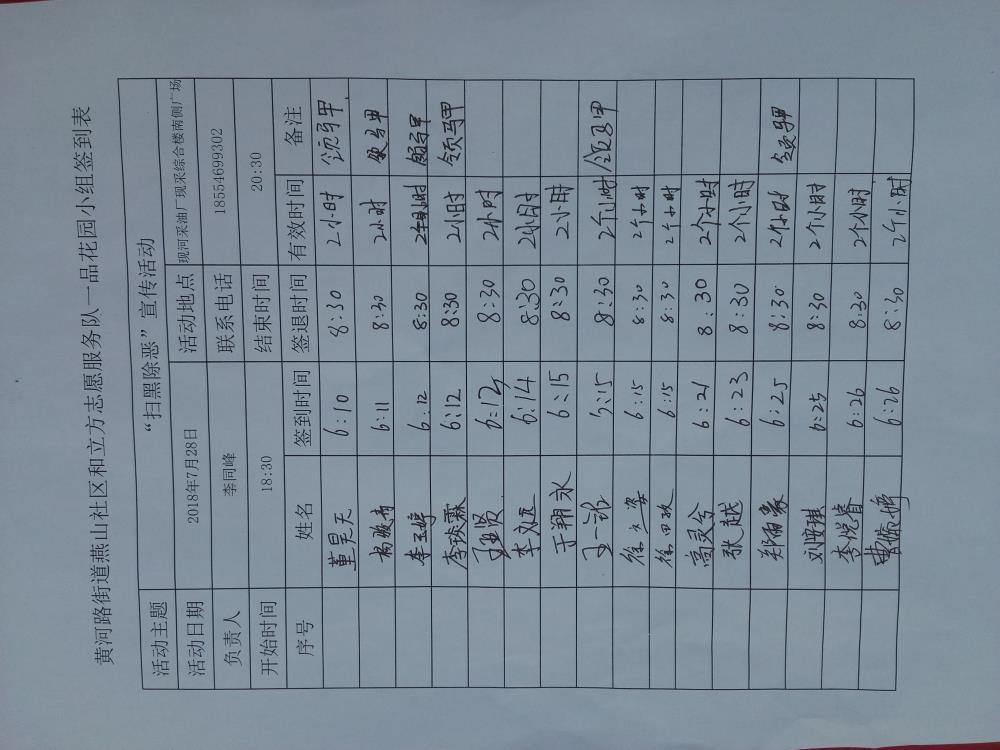 黄河路街道燕山社区和立方志愿服务队一品花园小组签到表
活动主题 “扫黑除恶”宣传活动
活动日期 2018年7月28日 活动地点 现河采油厂现采综合楼南侧广场
负责人 李同峰 联系电话 18554699302
开始时间 18:30 结束时间 20:30
序号 姓名 签到时间 签退时间 有效时间 备注
董昊天 6:10 8:30 2小时 领马甲
6:11 8:30 2小时 领马甲
李玉婷 6:12 8:30 2个小时 领马甲
李琰霖 6:12 8:30 2小时 领马甲
6:12 8:30 2小时
6:14 8:30 2小时
于翔永 6:15 8:30 2小时
8:30 2个小时 领马甲
6:15 8:30 2个小时
6:15 8:30 2个小时
高灵兮 6:21 8:30 2个小时
张越 6:23 8:30 2个小时
郑雨豪 6:25 8:30 2个小时 领马甲
6:25 8:30 2个小时
李悦睿 6:26 8:30 2个小时
6:26 8:30 2个小时